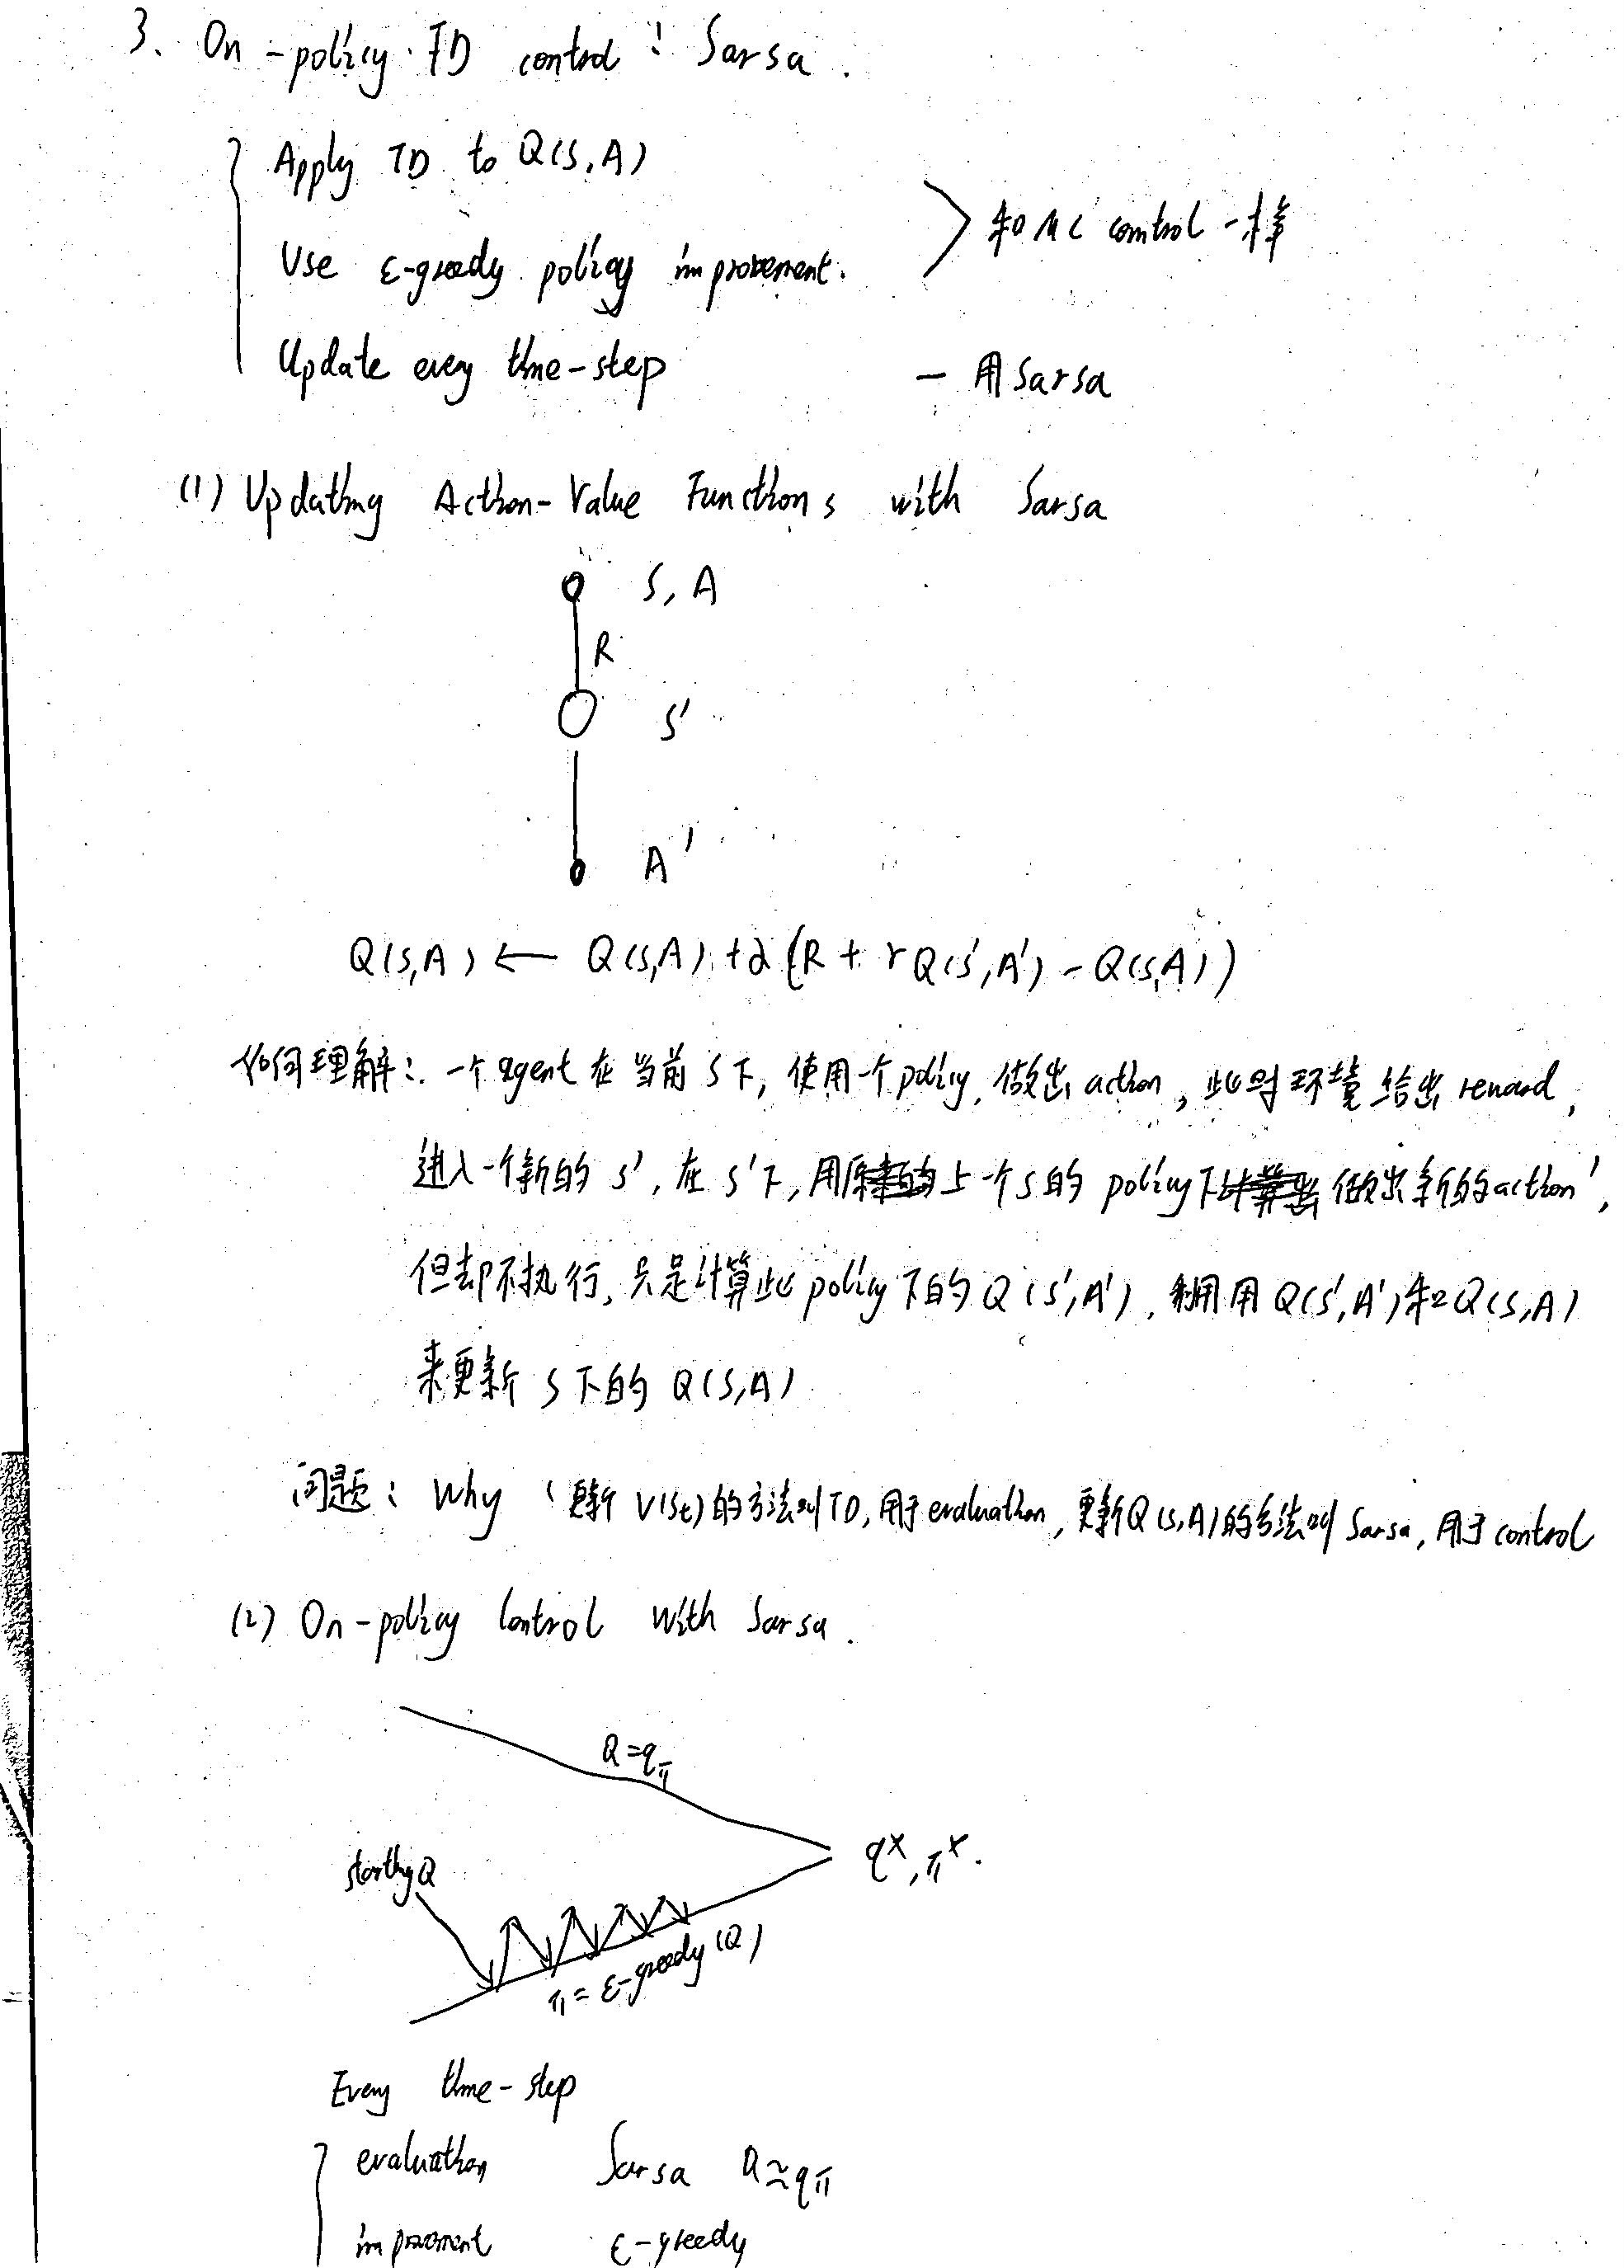 3. On-policy TD control: Sarsa.
Apply TD to Q(S,A)
Use ε-greedy policy improvement.
> 和MC control一样
Update every time-step
— 用Sarsa
(1) Updating Action-Value Functions with Sarsa
S, A
R
S'
A'
Q(S,A) ← Q(S,A) + α(R + γQ(S',A') - Q(S,A))
如何理解: 一个agent在当前S下, 使用一个policy, 做出action, 此时环境给出reward,
进入一个新的S', 在S'下, 用上一个S的policy下做出新的action',
但却不执行, 只是计算此policy下的Q(S',A'), 利用用Q(S',A')和Q(S,A)
来更新S下的Q(S,A)
问题: Why 更新V(St)的方法叫TD, 用于evaluation, 更新Q(S,A)的方法叫Sarsa, 用于control
(2) On-policy Control with Sarsa.
Q=qπ
starting Q
q*, π*.
π = ε-greedy(Q)
Every time-step
evaluation Sarsa Q≈qπ
improvement ε-greedy